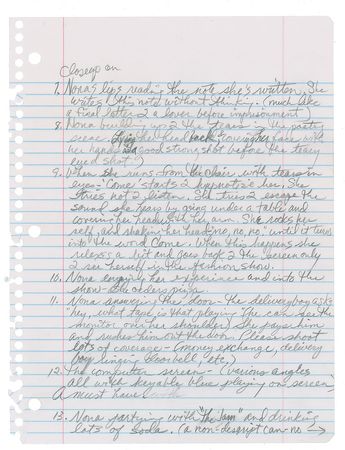 Closeup on
7. Nona's lips reading the note she's written. She
writes this note without thinking. (much like
a final letter 2 a lover before imprisonment
8. Nona building up 2 the tears - the party
head back covering her face with
her hands good strong shot before the teary
eyed shot)
9. When she runs from the chair with tears in
eyes - "Come" starts 2 hypnotize her. She
tries not 2 listen. She tries 2 escape the
sound she hears by going under a table and
covering her head with her arm. She rocks her
self, and shaking her head no, no, no," until it turns
into the word Come. When this happens she
releases a bit and goes back 2 the screen only
2 see herself in the fashion show.
10. Nona enjoying her experience and into the
show - she orders pizza
11. Nona answering the door - the delivery boy asks
"hey, what tape is that playing (he can see the
monitor over her shoulder) she pays him
and rushes him out the door. Please shoot
lots of coverage - (money exchange, delivery
boy ringing doorbell, etc.)
12. The computer screen - (various angles
all with keyable blue playing on screen)
A must have
13. Nona partying with "the Jam" and drinking
lots of soda. (a non-descript can - no →